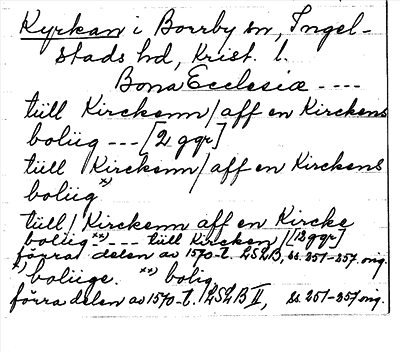 Kyrkan i Borrby sn, Ingel-
stads hd, Krist. l.
Bona Ecclesiæ ----
tüll Kirckenn/aff en Kirckens
boliig --- [2 ggr]
tüll Kirckenn/aff en Kirckens
boliig x)
tüll/Kirckenn aff en Kircke
boliig xx) --- tüll Kircken/[13 ggr]
förra delen av 1570-t. LSLB, ss. 251-257 orig.
x) boliige. xx) bolig
förra delen av 1570-t. LSLB II, ss. 251-257 orig.